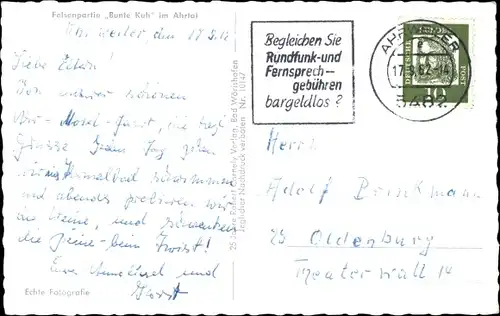 Felsenpartie „Bunte Kuh" im Ahrtal
Ahrweiler den 17.8.62
Liebe Edern!
Von unserer schönen
Ahr-Mosel-Fahrt, die herzl.
Grüsse. Jeden Tag gehen
wir ins Thermalbad schwimmen
und abends probieren wir
die Weine, und schwenken
die Beine beim Twist!
Eure Anneliesel und
Horst
Echte Fotografie
25 Jahre Rubert Hartely Verlag, Bad Wörishofen
Jeglicher Nachdruck verboten Nr. 10147
Begleichen Sie
Rundfunk-und
Fernsprech-
gebühren
bargeldlos?
AHRWEILER
17.8.62-14
5487
DEUTSCHE BUNDESPOST
10
Herrn
Adolf Brinkmann
23 Oldenburg
Theaterwall 14